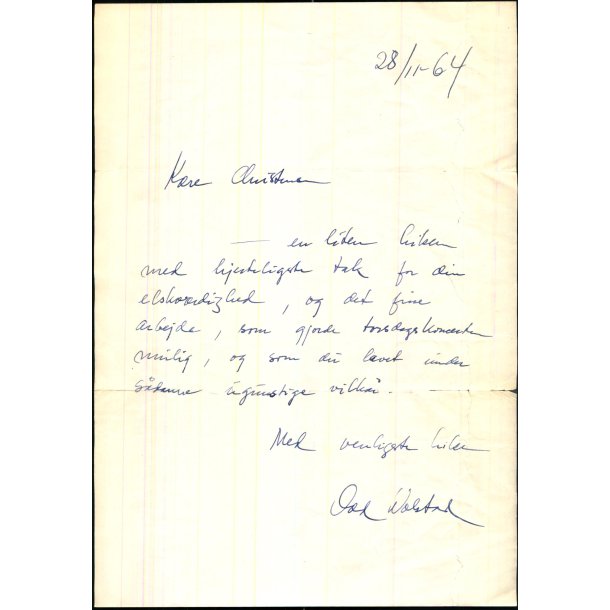 28/11-64
Kære Christensen
— en liten hilsen
med hjerteligste tak for din
elskværdighed, og det fine
arbejde, som gjorde torsdagskoncerten
mulig, og som du lavet under
sådanne ugunstige vilkår.
Med venligste hilsen